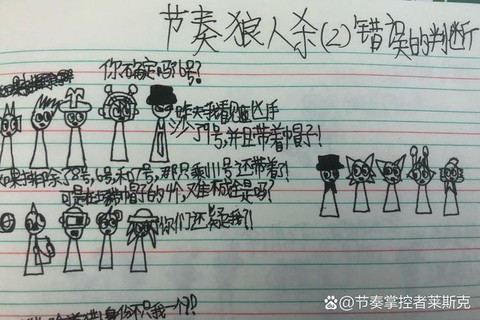 节奏狼人杀(2)错误的判断
你不确定吗6号?
昨天我看见凶手
沙了9号,并且带着帽子!
如果排除了8号,6号和7号,那只乘11号还带着了
可是在带帽子的
你们还疑我?!
身份不只我一个?!
@节奏掌控者莱斯克